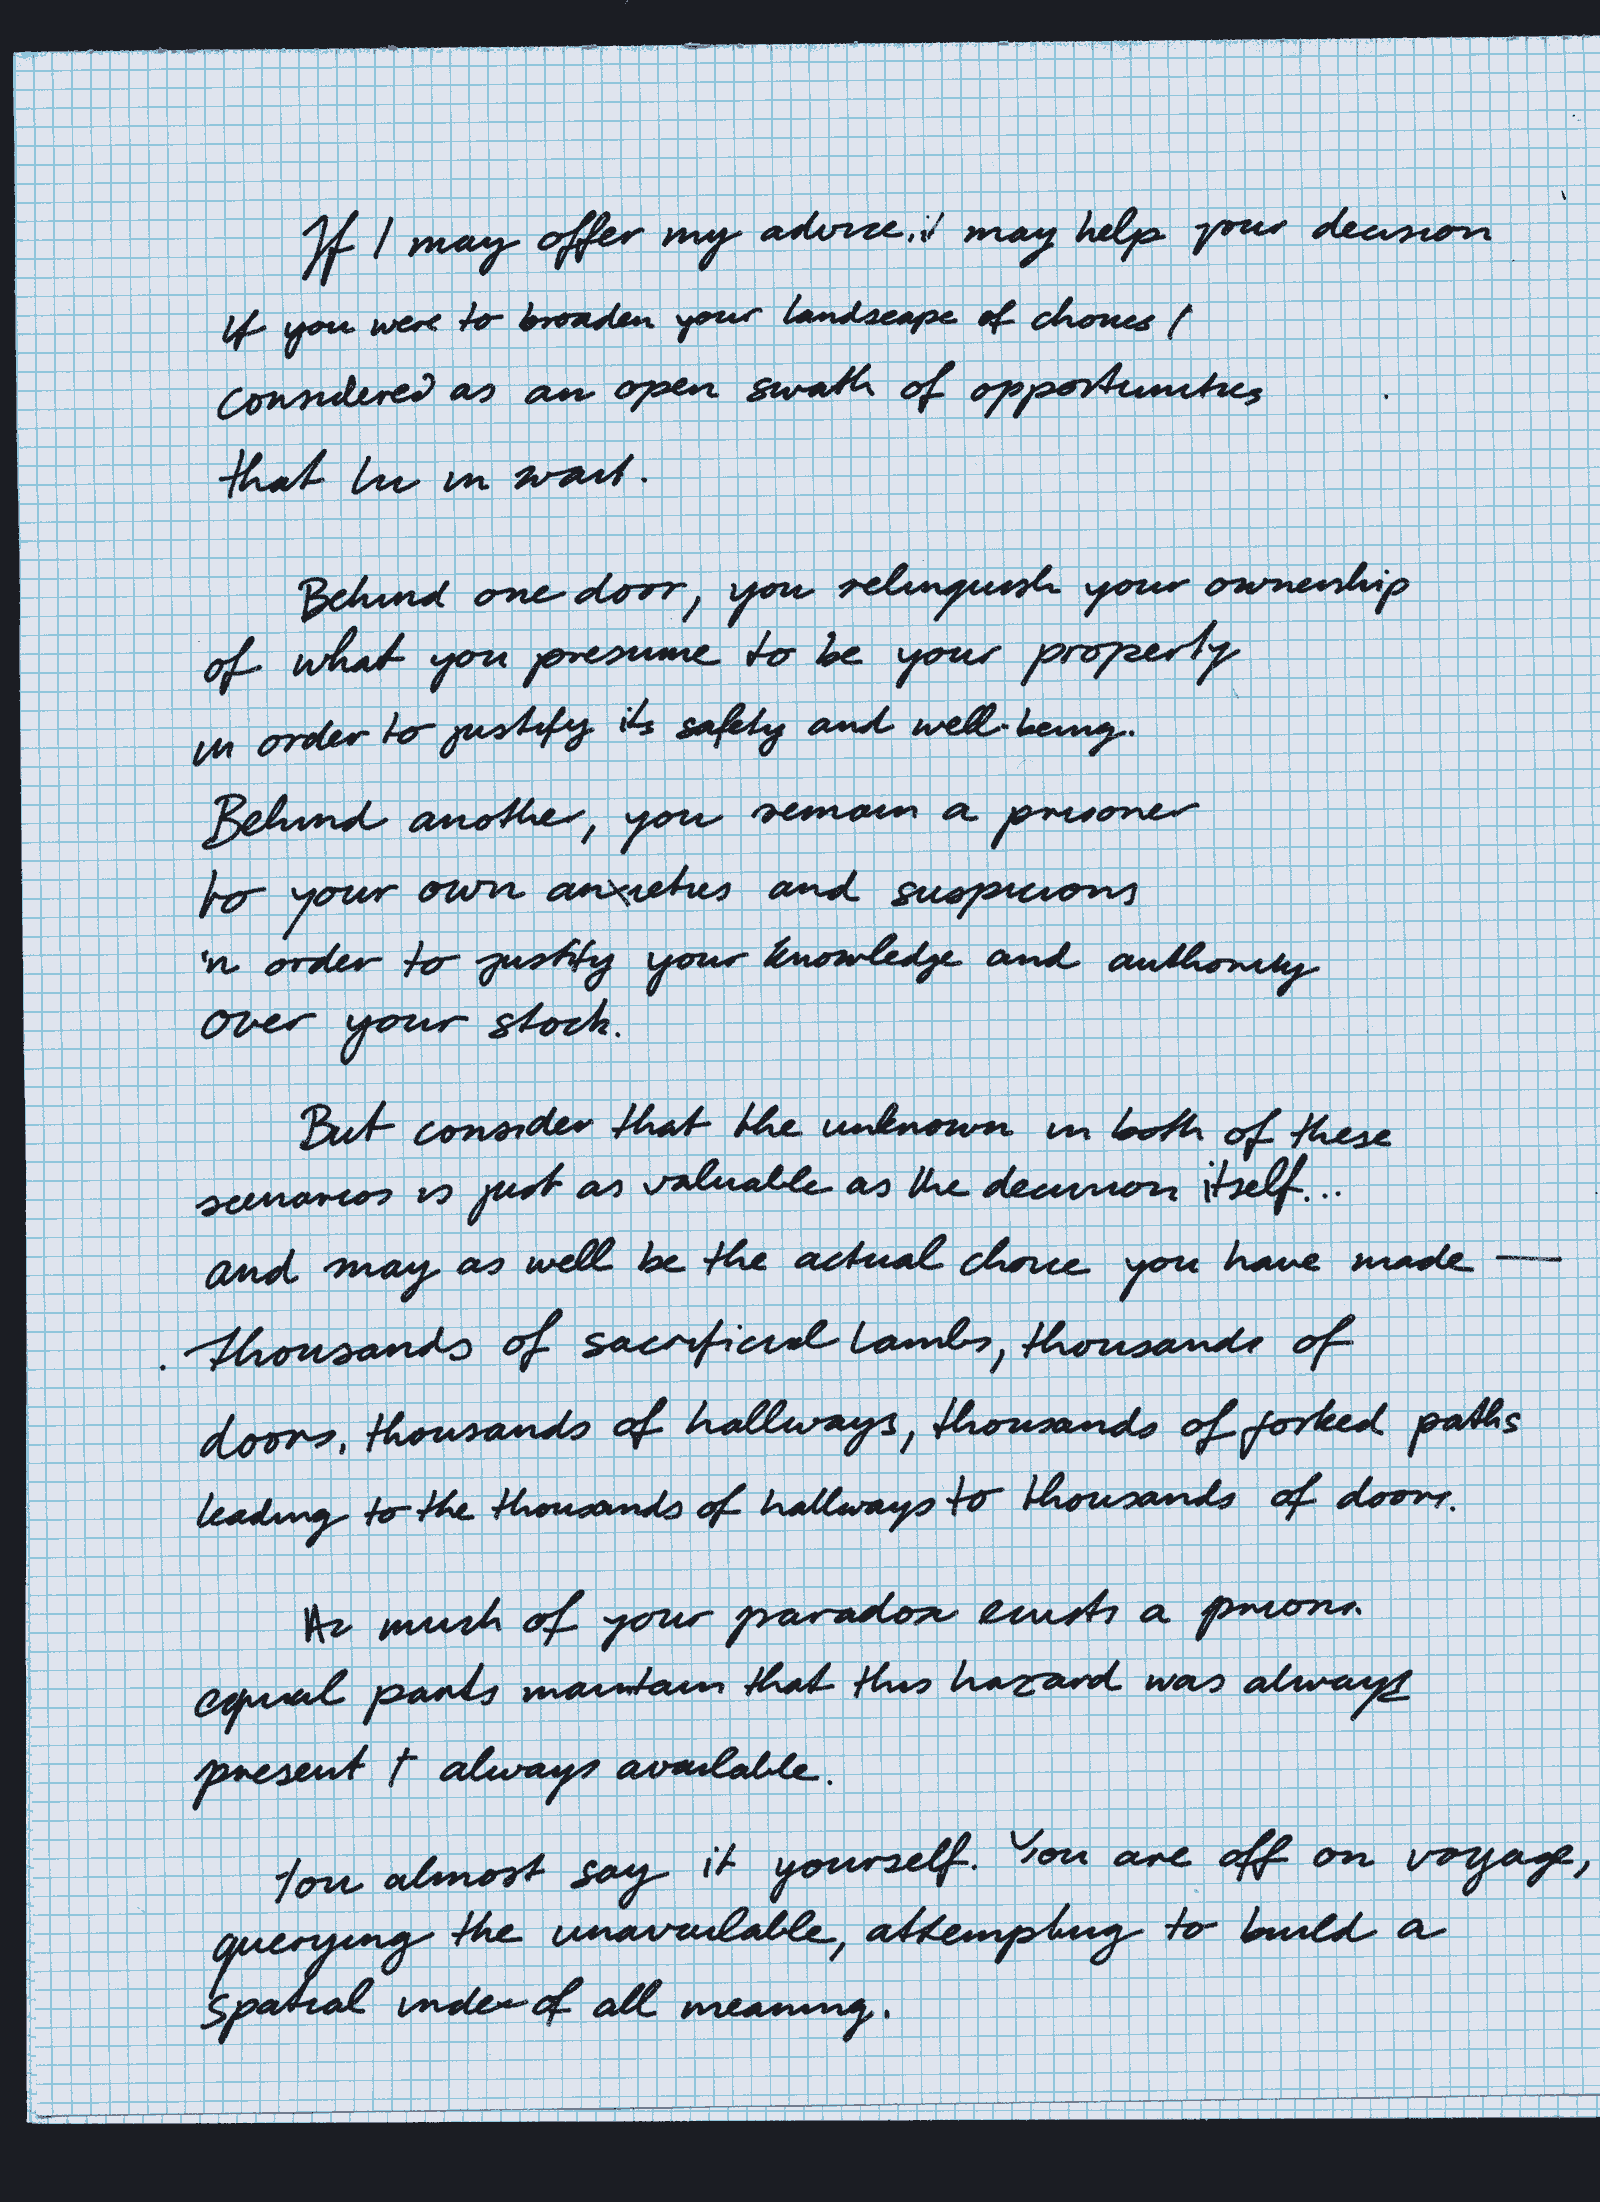 If I may offer my advice, it may help your decision
if you were to broaden your landscape of choices /
considered as an open swath of opportunities
that lie in wait.
Behind one door, you relinquish your ownership
of what you presume to be your property
in order to justify its safety and well-being.
Behind another, you remain a prisoner
to your own anxieties and suspicions
in order to justify your knowledge and authority
over your stock.
But consider that the unknown in both of these
scenarios is just as valuable as the decision itself...
and may as well be the actual choice you have made —
thousands of sacrificial lambs, thousands of
doors, thousands of hallways, thousands of forked paths
leading to the thousands of hallways to thousands of doors.
As much of your paradox exists a priori.
equal parts maintain that this hazard was always
present + always available.
You almost say it yourself. You are off on voyage,
querying the unavailable, attempting to build a
spatial index of all meaning.